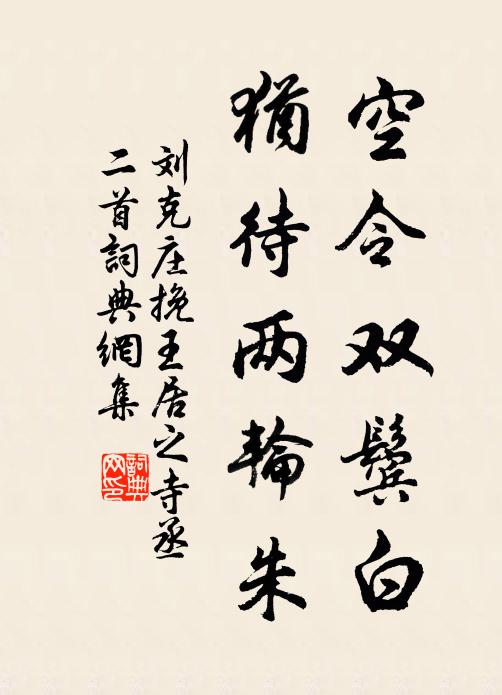 空令双鬓白
猶待两輪朱
刘克庄挽王居之寺丞
二首詞典網集
詞典
网印